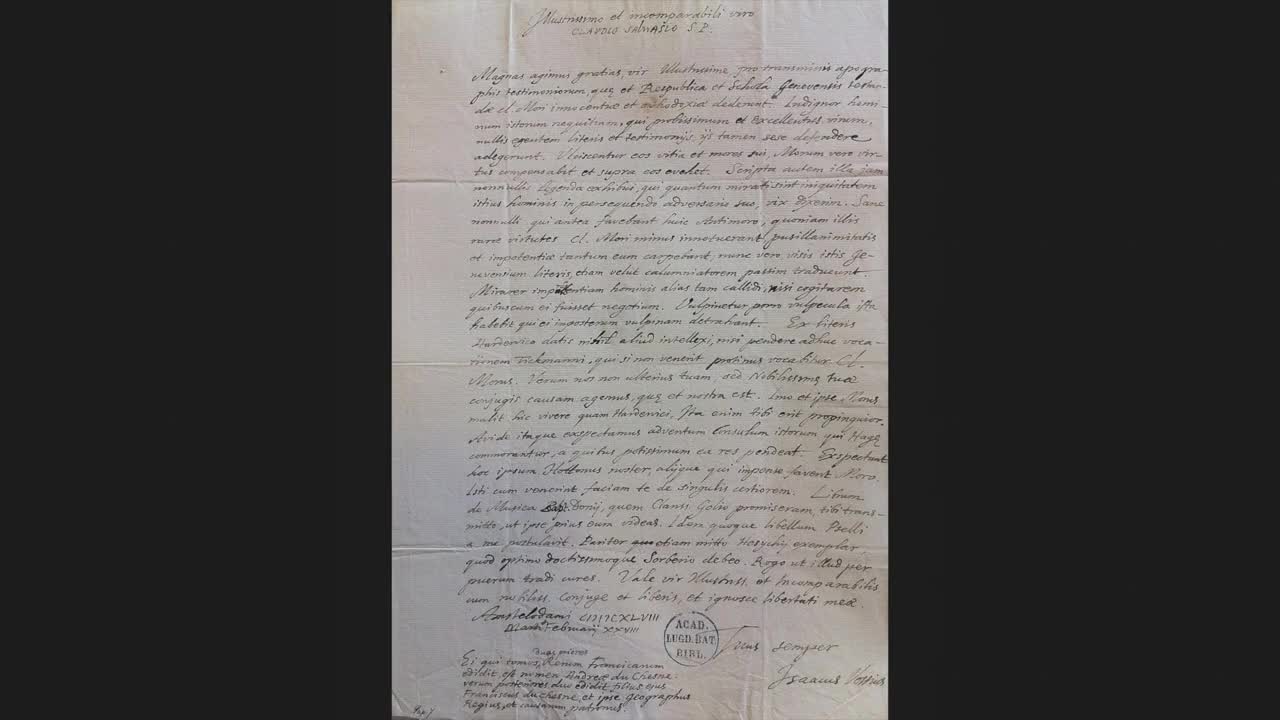 Illustrissimo et incomparabili viro
CLAVDIO SALMASIO S.P.
Magnas agimus gratias, vir Illustrissime, pro transmissis apogra-
phis testimoniorum, quę et Respublica et Schola Genevensis
cl. Mori innocentiæ et orthodoxiæ dederunt. Indignor homi-
num istorum nequitiam, qui probissimum et excellentem virum,
nullis egentem literis et testimonijs, ijs tamen sese defendere
adegerunt. Ulciscentur eos vitia et mores sui, Morum vero vir-
tus compensabit et supra eos evehet. Scripta autem illa jam
nonnullis legenda exhibui, qui quantum mirati sint iniquitatem
istius hominis in persequendo adversario suo, vix dixerim. Sane
nonnulli qui antea favebant huic Antimoro, quoniam illis
raræ virtutes Cl. Mori minus innotuerant, pusillanimitatis
et impotentiæ tantum eum carpebant, nunc vero visis istis Ge-
nevensium literis, etiam velut calumniatorem passim traducunt.
Mirarer hominis alias tam callidi, nisi cogitarem
quibuscum ei fuisset negotium. Vulpinetur porro vulpecula ista
habebit qui ei imposterum vulpinam detrahant. Ex literis
Hardervico datis nihil aliud intellexi, nisi pendere adhuc voca-
tionem Dickmanni, qui si non venerit protinus vocabitur Cl.
Morus. Verum nos non ulterius tuam, sed Nobilissimæ tuæ
conjugis causam agemus, quę et nostra est. Imo et ipse Morus
malit hic vivere quam Hardervici, Ita enim tibi erit propinquior.
Avide itaque exspectamus adventum Consulum istorum qui Hagę
commorantur, a quibus potissimum ea res pendeat. Exspectant
hoc ipsum Hottonus noster, alijque qui impense favent Moro.
Isti cum venerint faciam te de singulis certiorem. Librum
de Musica Bapt. Donij, quem Clariss. Golio promiseram, tibi trans-
mitto, ut ipse prius eum videas. Idem quoque libellum Pselli
a me postulavit. Pariter etiam mitto Hesychij exemplar
quod optimo doctissimoque Sorberio debeo. Rogo ut illud per
puerum tradi cures. Vale vir Illustriss. et Incomparabilis
cum nobiliss. Conjuge et liberis, et ignosce libertati meæ.
Amstelodami CIƆIƆCXLVIII
Februarij XXVIII
ACAD.
LUGD. BAT.
BIBL.
Tuus semper
Isaacus Vossius
duos priores
Ei qui tomos, Rerum Francicarum
edidit, est nomen Andreæ du Chesne:
verum posteriores duo edidit filius ejus
Franciscus du Chesne, et ipse Geographus
Regius, et causarum patronus.